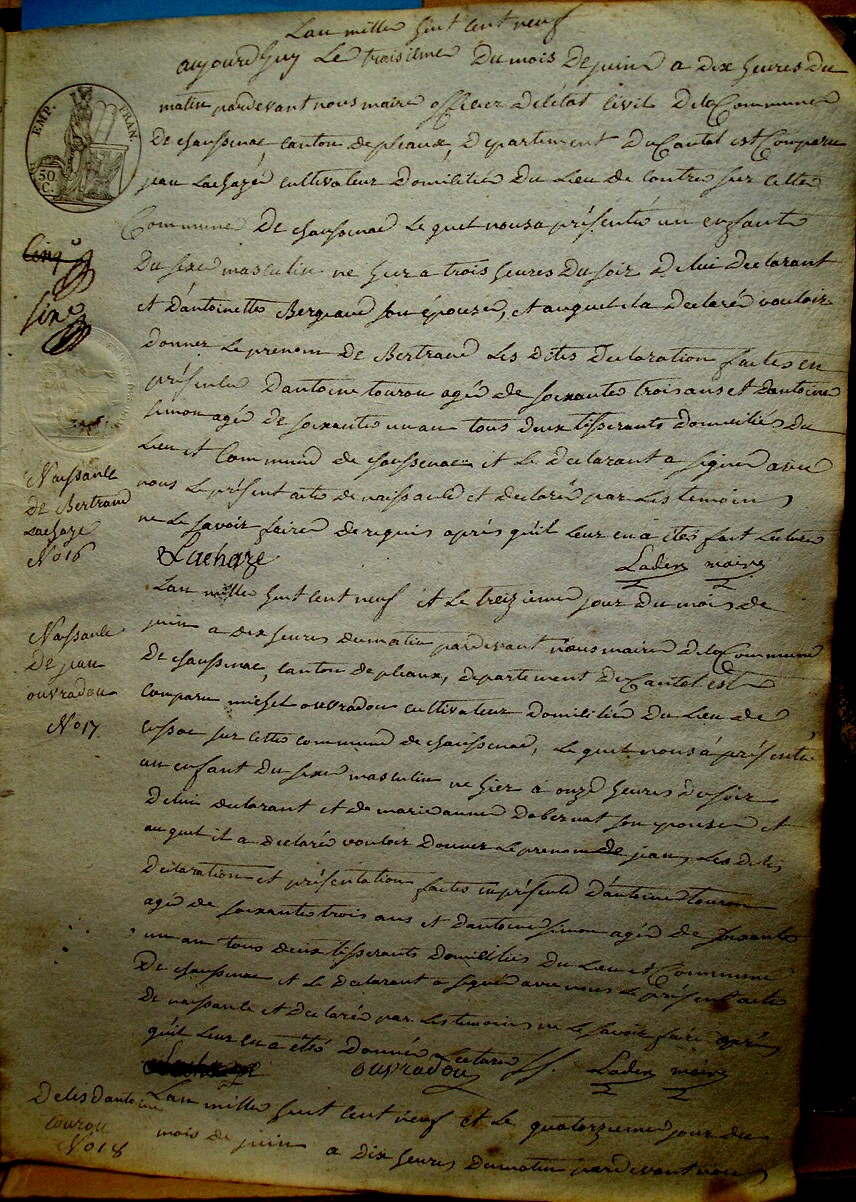 Lan mille huit cent neuf
aujourd'huy Le troisieme Du mois De juin a Dix heures Du
matin pardevant nous maire officier De letat Civil De la Commune
De chaussenac canton de pleaux, Departement Du Cantal est Comparu
jean Lachaze cultivateur Domicilié Du Lieu De contre sur cette
Commune De chaussenac Le quel nous a présenté un enfant
Du sexe masculin ne hier a trois heures Du soir De lui Declarant
et D'antoinette Bergeaud son épouse, et auquel il a Declaré vouloir
Donner Le prenom De Bertrand Les Dites Declaration faites en
présence D'antoine tourou agé De soixante trois ans et D'antoine
simon agé De soixante un an tous Deux tisserants Domiciliés Du
Lieu et Commune De chaussenac et Le Declarant a signé avec
nous Le présent acte De naissance et Declaré par Les temoins
ne Le savoir faire De requis après qu'il Leur en a été fait Lecture
Lachaze
Laden maire
Lan mille huit cent neuf et Le treizieme jour Du mois De
juin a Dix heures Du matin pardevant nous maire De la Commune
De chaussenac, canton De pleaux, departement Du Cantal est
comparu michel ouvradou cultivateur Domicilié Du Lieu De
cussac sur cette commune De chaussenac, Le quel nous a présenté
un enfant Du sexe masculin ne hier a onze heures Du soir
De lui Declarant et De marie anne Dabernat son epouse et
au quel il a Declaré vouloir Donner Le prenom De jean, Les Dites
Declaration et présentation faites en présence D'antoine tourou
agé De soixante trois ans et D'antoine simon agé De soixante
un an tous Deux tisserants Domiciliés Du Lieu et Commune
De chaussenac et Le Declarant a signé avec nous Le présent acte
De naissance et Declaré par Les temoins ne Le savoir faire après
qu'il Leur en a été Donné Lecture
ouvradou
Laden maire
Lan mille huit cent neuf et Le quatorzieme jour Du
mois De juin a Dix heures Du matin pardevant nous
EMP. FRAN.
50
C.
Cinq
sixe
Naissance
De Bertrand
Lachaze
No 16
Naissance
De jean
ouvradou
No 17
Deces D'antoine
tourou
No 18